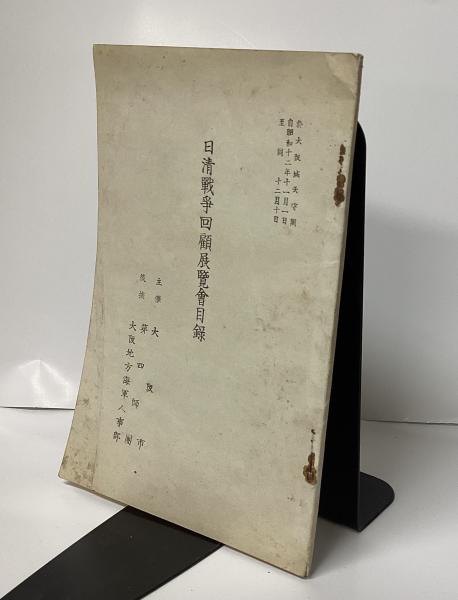 於大阪城天守閣
自昭和十二年十一月一日
至同十二月十日
日清戰爭回顧展覽會目錄
主催 大阪市
後援 第四師團
大阪地方海軍人事部